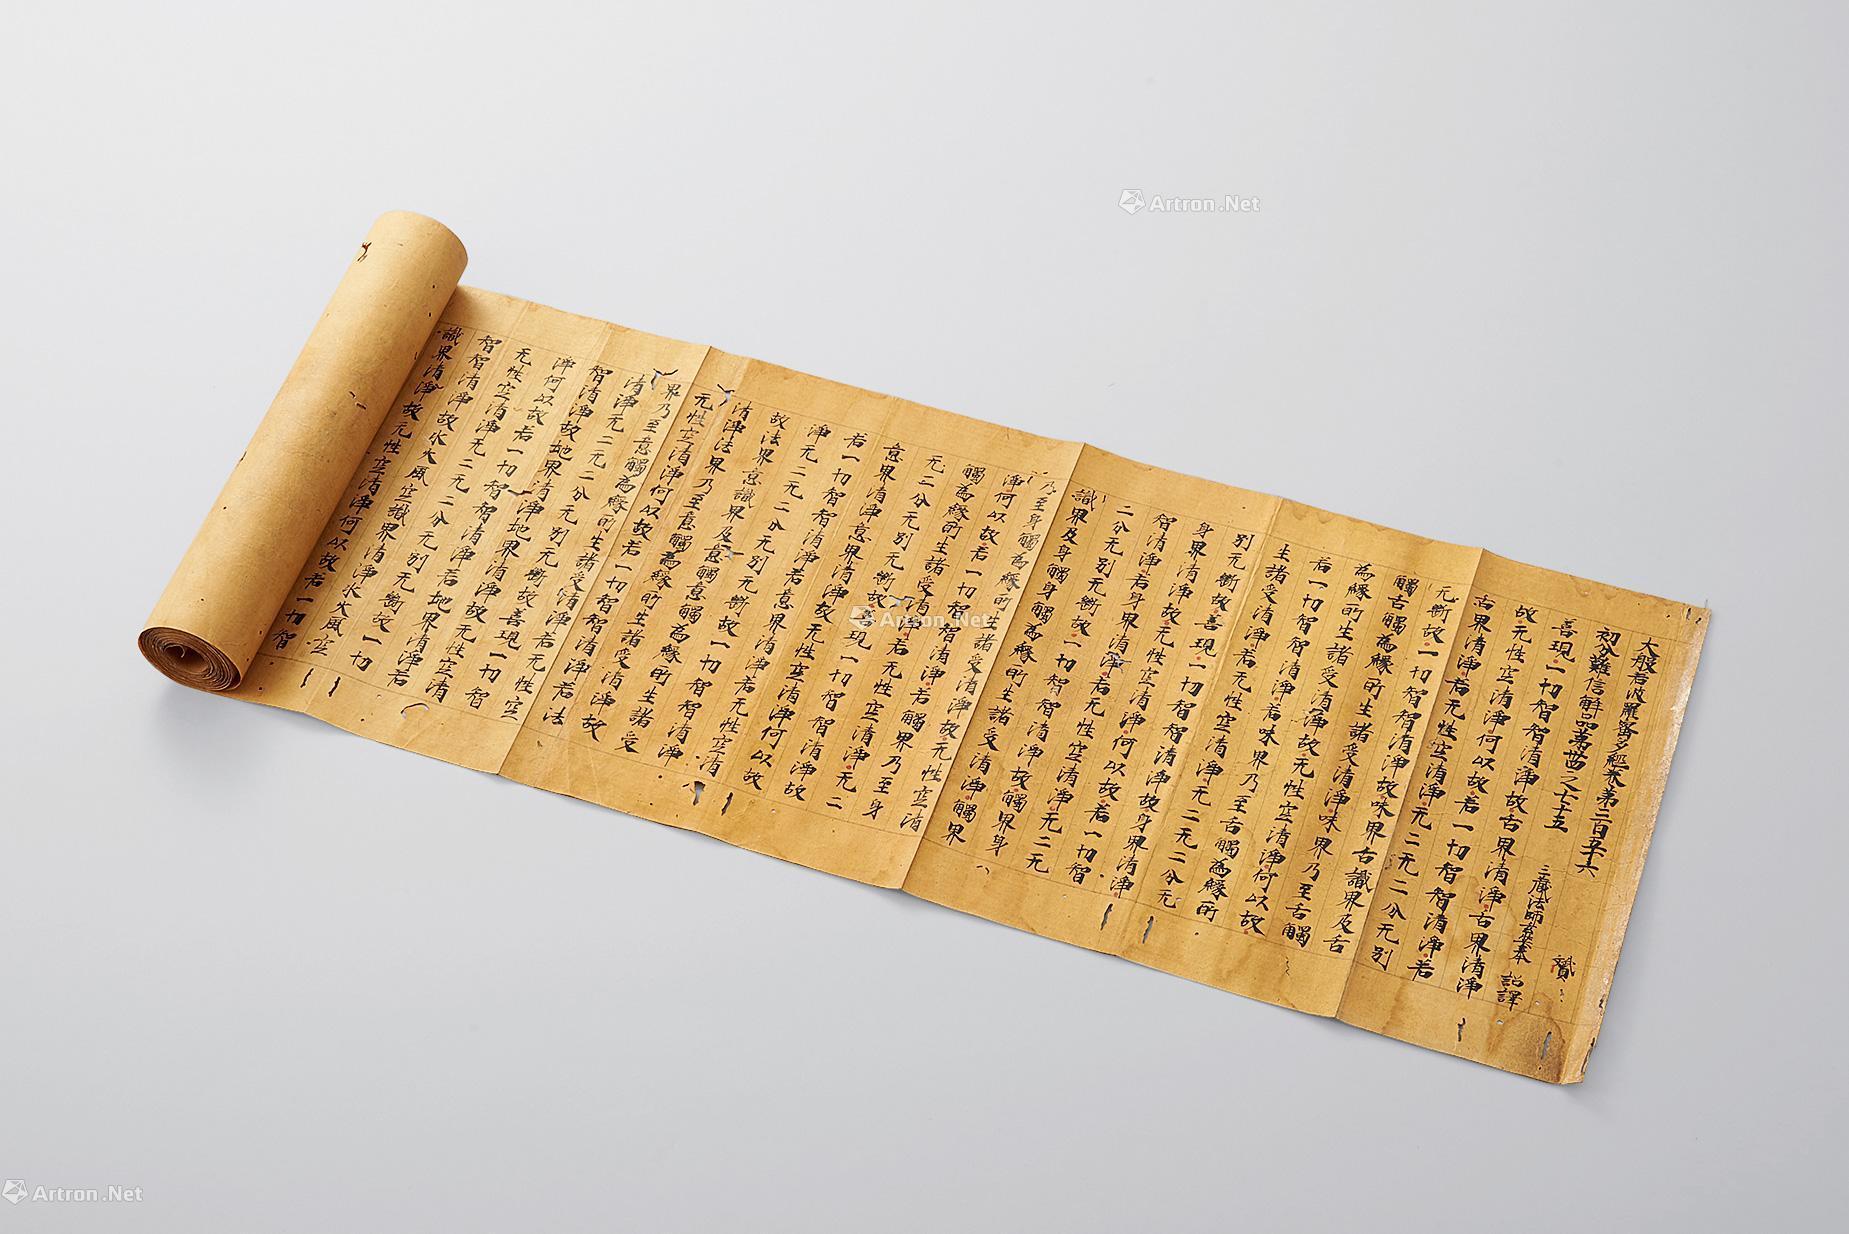 大般若波羅蜜多經卷第二百五十六
初分難信解品第卅四之七十五
三藏法師玄奘奉 詔譯
善現一切智智清淨故舌界清淨舌界清淨
故无性空清淨何以故若一切智智清淨若
舌界清淨若无性空清淨无二无二分无別
无斷故一切智智清淨故味界舌識界及舌
觸舌觸為緣所生諸受清淨味界乃至舌觸
為緣所生諸受清淨故无性空清淨何以故
若一切智智清淨若味界乃至舌觸為緣所
生諸受清淨若无性空清淨无二无二分无
別无斷故善現一切智智清淨故身界清淨
身界清淨故无性空清淨何以故若一切智
智清淨若身界清淨若无性空清淨无二无
二分无別无斷故一切智智清淨故觸界身
識界及身觸身觸為緣所生諸受清淨觸界
乃至身觸為緣所生諸受清淨故无性空清
淨何以故若一切智智清淨若觸界乃至身
觸為緣所生諸受清淨若无性空清淨无二
无二分无別无斷故善現一切智智清淨故
意界清淨意界清淨故无性空清淨何以故
若一切智智清淨若意界清淨若无性空清
淨无二无二分无別无斷故一切智智清淨
故法界意識界及意觸意觸為緣所生諸受
清淨法界乃至意觸為緣所生諸受清淨故
无性空清淨何以故若一切智智清淨若法
界乃至意觸為緣所生諸受清淨若无性空
清淨无二无二分无別无斷故善現一切智
智清淨故地界清淨地界清淨故无性空清
淨何以故若一切智智清淨若地界清淨若
无性空清淨无二无二分无別无斷故一切
智智清淨故水火風空識界清淨水火風空
識界清淨故无性空清淨何以故若一切智
Artron.Net
Artron.Net
Artron.Net